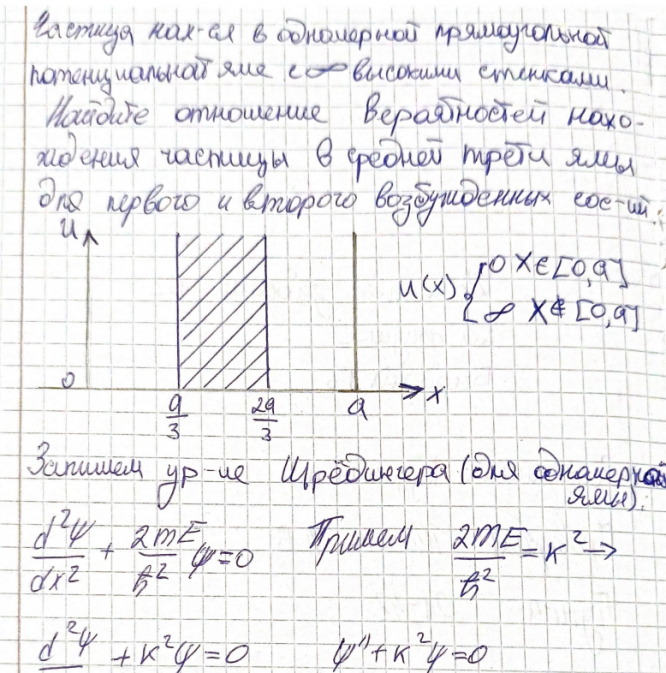 Частица нах-ся в одномерной прямоугольной
потенциальной яме с ∞ высокими стенками.
Найдите отношение вероятностей нахо-
ждения частицы в средней трети ямы
для первого и второго возбужденных сос-ий.
u
u(x) { 0 x∈[0,a]
∞ x∉[0,a]
0 a/3 2a/3 a x
Запишем ур-ие Шрёдингера (для одномерной
ямы).
d²ψ/dx² + 2mE/ħ² ψ=0 Примем 2mE/ħ² = k² →
d²ψ + k²ψ=0 ψ''+k²ψ=0